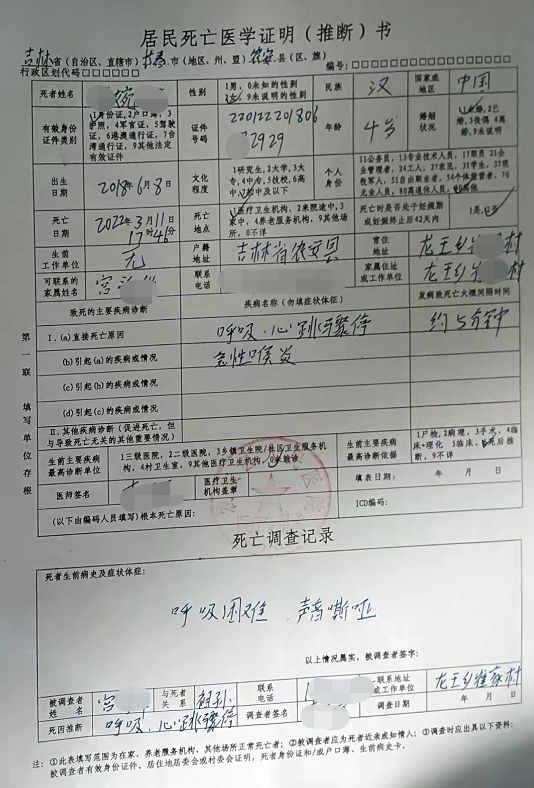 居民死亡医学证明（推断）书
吉林省（自治区、直辖市）长春市（地区、州、盟）农安县（区、旗）
行政区划代码□□□□□□ 编号：□□□□□□-□□□□□□□□
死者姓名 性别 1男，0未知的性别 2女，9未说明的性别 民族 汉 国家或地区 中国
有效身份证件类别 1身份证，2户口簿，3护照，4军官证，5驾驶证，6港澳通行证，7台湾通行证，9其他法定有效证件 证件号码 220122201806 2929 年龄 4岁 婚姻状况 1未婚，2已婚，3丧偶 4离婚，9未说明
出生日期 2018年6月8日 文化程度 1研究生，2大学，3大专，4中专，5技校，6高中，7初中及以下 个人身份 11公务员，13专业技术人员，17职员 21企业管理者，24工人，27农民，31学生，37现役军人，51自由职业者，54个体经营者，70无业人员，80离退休人员，90其他
死亡日期 2022年3月11日 17时46分 死亡地点 1医疗卫生机构，2来院途中，3家中，4养老服务机构，9其他场所，0不详 死亡时是否处于妊娠期或妊娠终止后42天内 1是，2否
生前工作单位 无 户籍地址 吉林省农安县 常住地址 龙王乡 村
可联系的家属姓名 宫 联系电话 家属住址或工作单位 龙王乡 村
致死的主要疾病诊断 疾病名称（勿填症状体征） 发病致死亡大概间隔时间
第一联 填写单位存根
I.(a)直接死亡原因 呼吸、心跳骤停 约5分钟
(b)引起(a)的疾病或情况 急性喉炎
(c)引起(b)的疾病或情况
(d)引起(c)的疾病或情况
II.其他疾病诊断（促进死亡，但与导致死亡无关的其他重要情况）
生前主要疾病最高诊断单位 1三级医院，2二级医院，3乡镇卫生院/社区卫生服务机构，4村卫生室，9其他医疗卫生机构，0未就诊 生前主要疾病最高诊断依据 1尸检，2病理，3手术，4临床+理化 5临床，6死后推断，9不详
医师签名 医疗卫生机构盖章 填表日期： 年 月 日
（以下由编码人员填写）根本死亡原因： ICD编码：
死亡调查记录
死者生前病史及症状体征：
呼吸困难 声音嘶哑
以上情况属实，被调查者签字：
被调查者姓名 宫 与死者关系 祖孙 联系电话 联系地址或工作单位 龙王乡崔家村
死因推断 呼吸、心跳骤停 调查者签名 调查日期 年 月 日
注：①此表填写范围为在家、养老服务机构、其他场所正常死亡者；②被调查者应为死者近亲或知情人；③调查时应出具以下资料：
被调查者有效身份证件，居住地居委会或村委会证明，死者身份证和/或户口簿、生前病史卡。